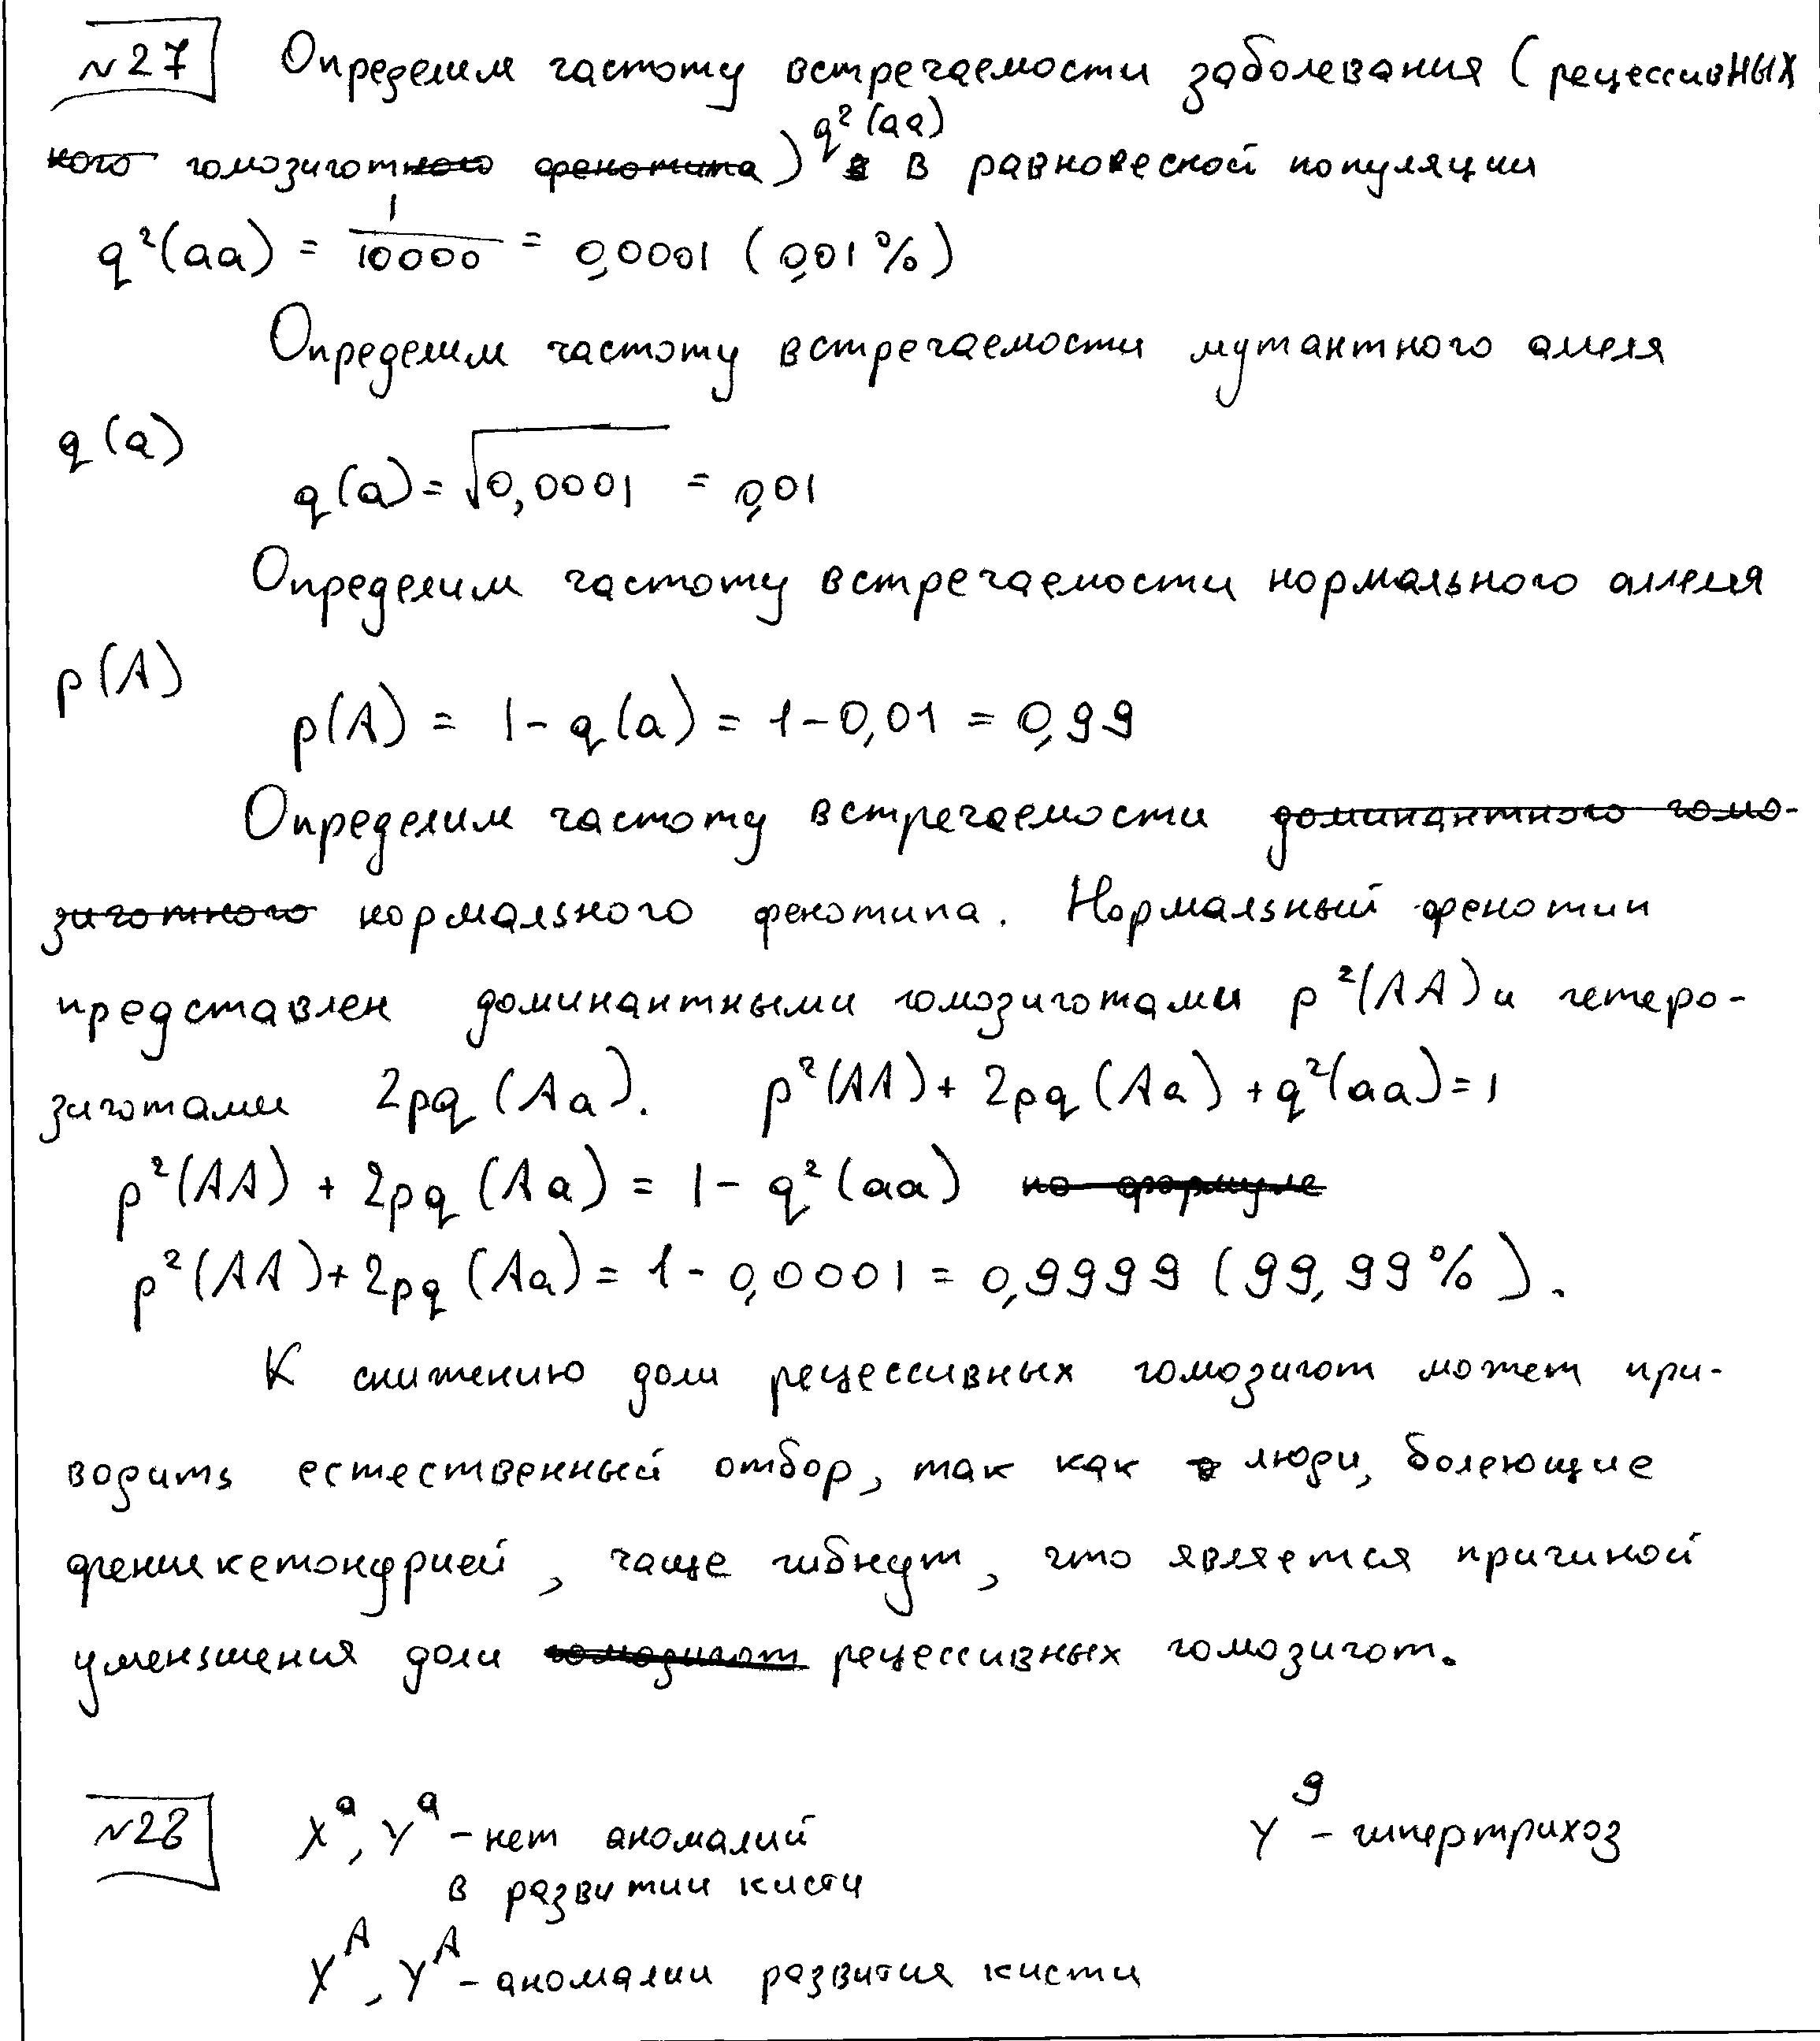 №27 Определим частоту встречаемости заболевания (рецессивных
ного гомозиготного фенотипа) q²(aa) в в равновесной популяции
q²(aa) = 1/10000 = 0,0001 (0,01%)
Определим частоту встречаемости мутантного аллеля
q(a)
q(a) = √0,0001 = 0,01
Определим частоту встречаемости нормального аллеля
p(A)
p(A) = 1 - q(a) = 1 - 0,01 = 0,99
Определим частоту встречаемости доминантного гомо-
зиготного нормального фенотипа. Нормальный фенотип
представлен доминантными гомозиготами p²(AA) и гетеро-
зиготами 2pq (Aa). p²(AA) + 2pq (Aa) + q²(aa) = 1
p²(AA) + 2pq (Aa) = 1 - q²(aa) по формуле
p²(AA) + 2pq (Aa) = 1 - 0,0001 = 0,9999 (99,99%).
К снижению доли рецессивных гомозигот может при-
водить естественный отбор, так как люди, болеющие
фенилкетонурией, чаще гибнут, что является причиной
уменьшения доли гомозигот рецессивных гомозигот.
№28 Xᵃ, Yᵃ - нет аномалий Y^g - гипертрихоз
в развитии кисти
Xᴬ, Yᴬ - аномалии развития кисти